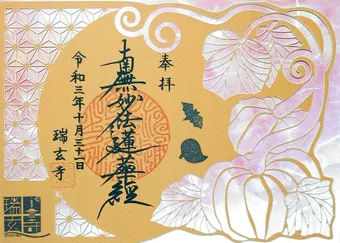 奉拝
南無妙法蓮華経
令和三年十月三十一日
瑞玄寺